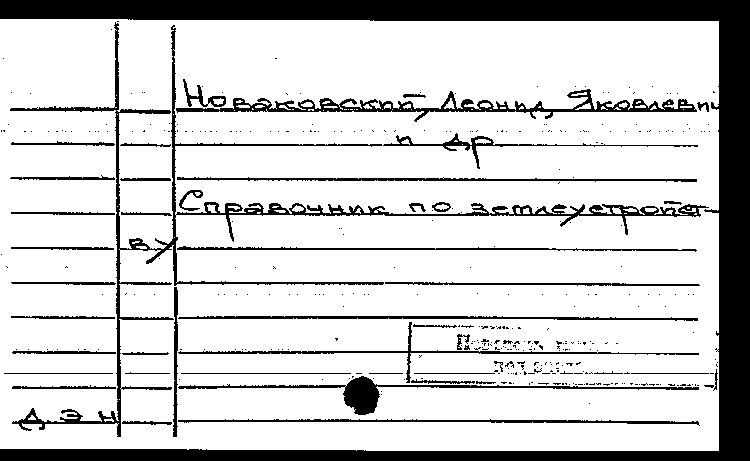 Новаковский, Леонид Яковлевич
и др
Справочник по землеустройст-
ву
Д Э Н